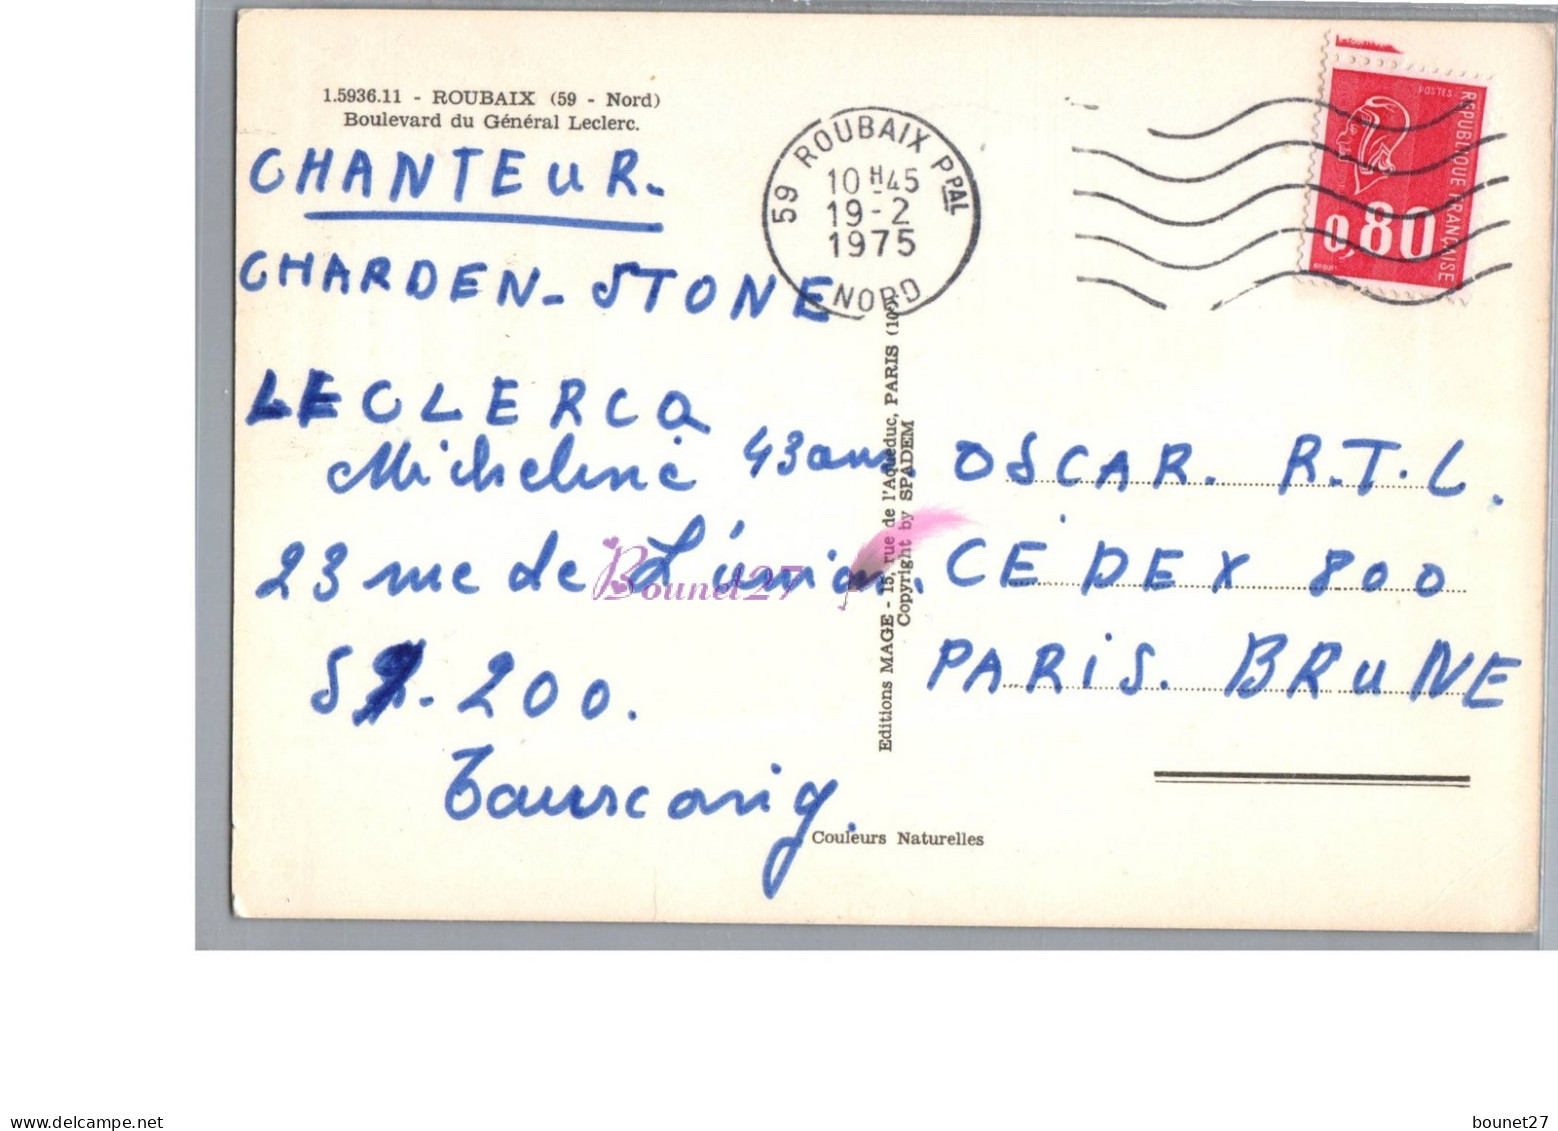 1.5936.11 - ROUBAIX (59 - Nord)
Boulevard du Général Leclerc.
CHANTEUR.
CHARDEN - STONE
LECLERCQ
Micheline 43 ans.
23 rue de L'union.
59.200.
Tourcoing.
59 ROUBAIX PPAL
10 H 45
19-2
1975
NORD
POSTES
REPUBLIQUE FRANÇAISE
0,80
OSCAR. R.T.L.
CEDEX 800
PARIS. BRUNE
Editions MAGE - 15, rue de l'Aqueduc, PARIS (10e)
Copyright by SPADEM
Couleurs Naturelles
Bounet27
www.delcampe.net
bounet27